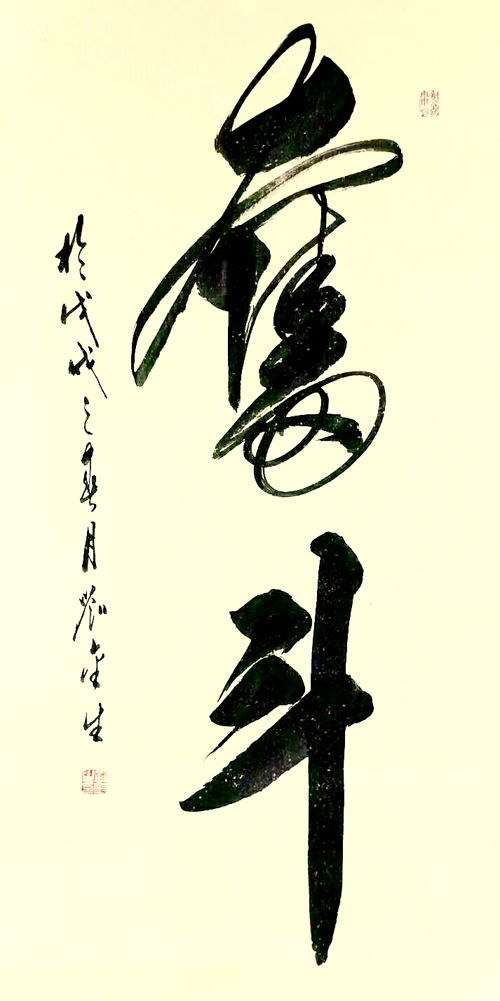 奮斗
於戊戌之春月劉金生